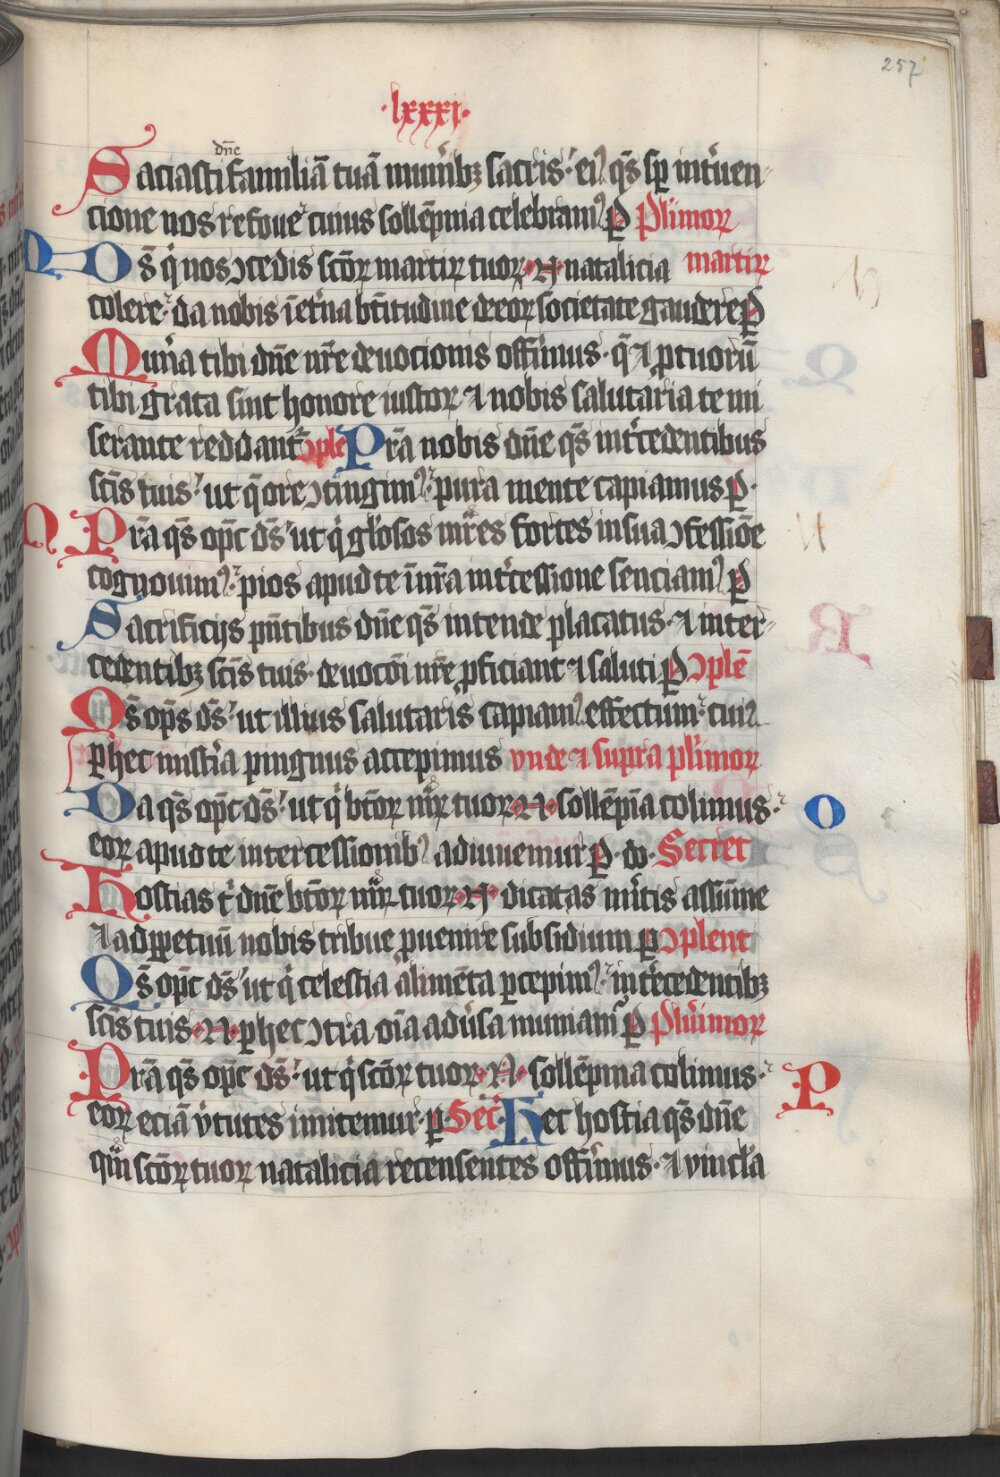 257
·lxxxi·
dn̄e
Saciasti familiā tuā mun̄ibꝫ sacris: ei⁹ qs̄ sp̄ int̄uen-
cione nos refoue cuius sollēpnia celebram⁹ ꝑ Pl̄imoꝝ
Ds̄ q̇ nos ꝯcedis sc̄oꝝ martiꝝ tuoꝝ ·N· natalicia martiꝝ
colere· da nobis ī et̄na bt̄itudine de eoꝝ societate gaudere ꝑ
Mun̄a tibi dn̄e nr̄e deuocionis offim̄us· q̄ ⁊ ꝓ tuorū
tibi grata sint honore iustoꝝ ⁊ nobis salutaria te mi
serante reddant᷑ ꝯple Pr̄a nobis dn̄e qs̄ int̄cedentibus
sc̄is tuis· ut q̄ ore ꝯtingim⁹· pura mente capiamus ꝑ·
Pr̄a qs̄ op̄c ds̄· ut q̇ gl̄osos mr̄es fortes in sua ꝯfessiōe
cognouim⁹· pios apud te ī nr̄a int̄cessione senciam⁹ ꝑ
Sacrificijs pn̄tibus dn̄e qs̄ intende placatus· ⁊ inter-
cedentibꝫ sc̄is tuis· deuocōi nr̄e ꝓficiant ⁊ saluti ꝑ ꝯplē
Qs̄ op̄s ds̄· ut illius salutaris capiam⁹ effectum· cui⁹
ꝑ hec mist̄ia pingnus accepimus vnde ⁊ supra pl̄imoꝝ
Da qs̄ op̄c ds̄· ut q̇ bt̄oꝝ mr̄ꝝ tuoꝝ ·N· sollēpn̄ia colimus· O
eoꝝ apud te intercessionib⁹ adiuuemur ꝑ· do· Secret
Hostias ṫ dn̄e bt̄oꝝ mr̄ꝝ tuoꝝ ·N· dicatas m̄itis assūme
⁊ ad ꝑpetuū nobis tribue ꝓuenire subsidium ꝑ ꝯplent
Qs̄ op̄c ds̄· ut q̇ celestia alimēta ꝑcepim⁹· int̄cedentibꝫ
sc̄is tuis ·N· ꝑ hec ꝯtra oīa adūsa muniam᷑ ꝑ Plūimoꝝ
Pr̄a qs̄ op̄c ds̄· ut q̇ sc̄oꝝ tuoꝝ ·N· sollēpnia colimus· P
eoꝝ eciā v̄tutes imitemur· ꝑ Sec̄ Hec hostia qs̄ dn̄e
quā sc̄oꝝ tuoꝝ natalicia recensentes offim̄us· ⁊ vincl̄a